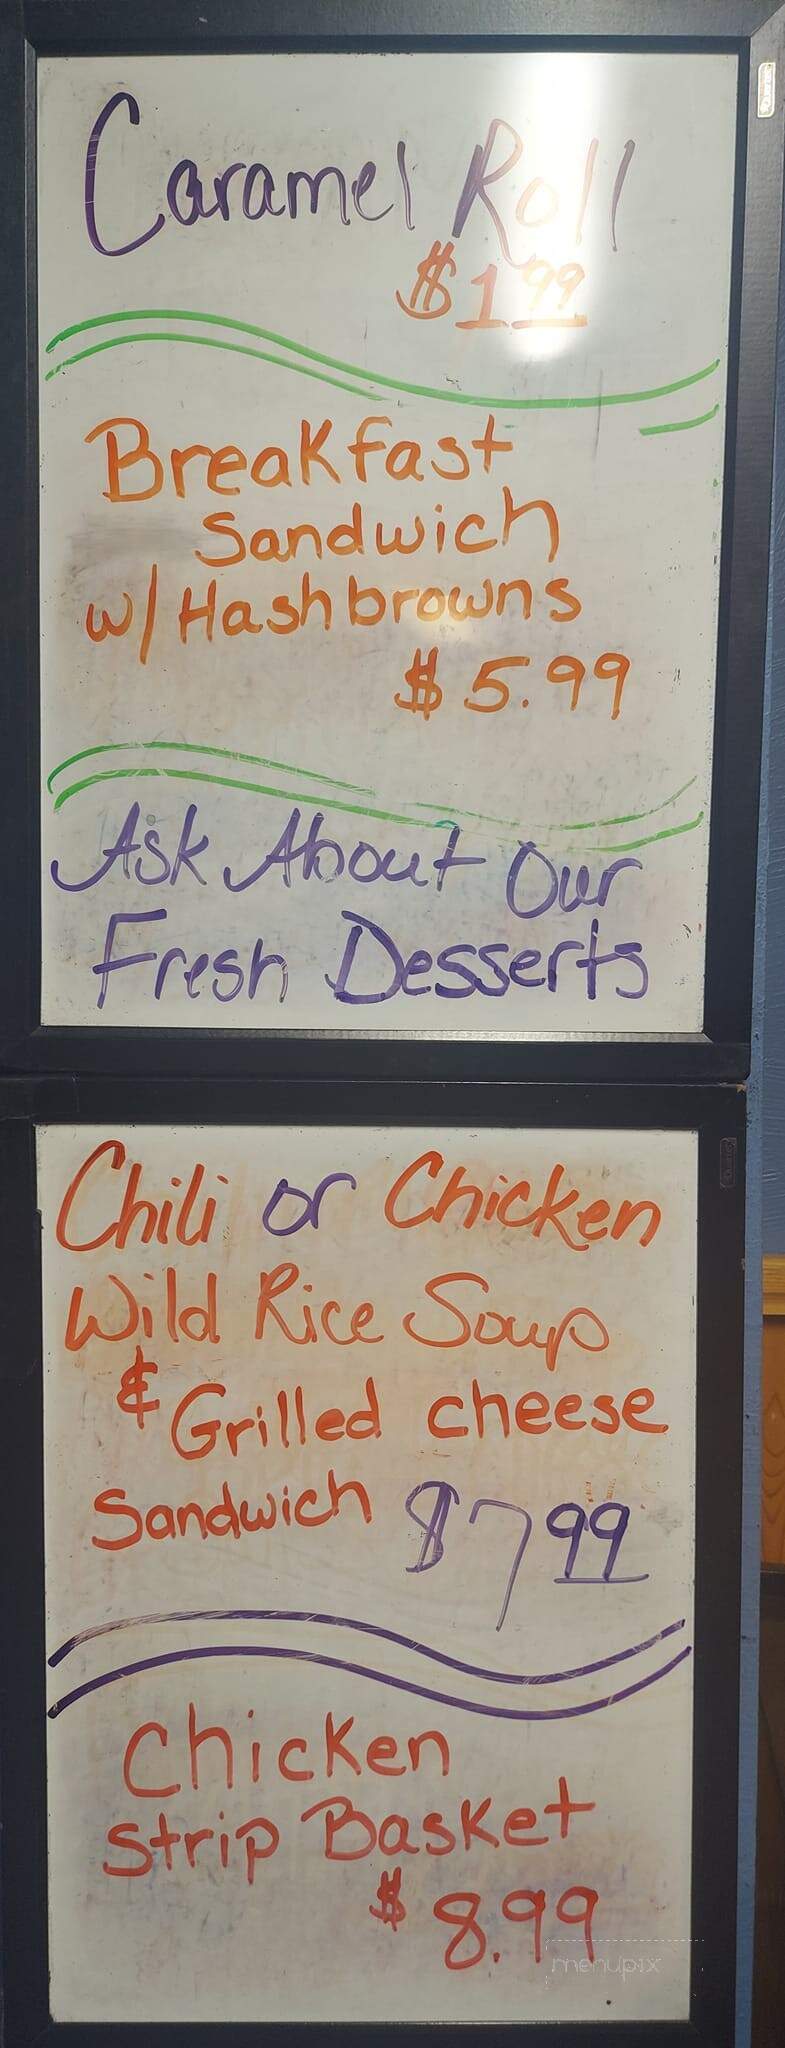 Caramel Roll
$1.99
Breakfast
Sandwich
w/Hashbrowns
$5.99
Ask About Our
Fresh Desserts
Chili or Chicken
Wild Rice Soup
& Grilled cheese
Sandwich $7 99
Chicken
Strip Basket
$8.99
menupix